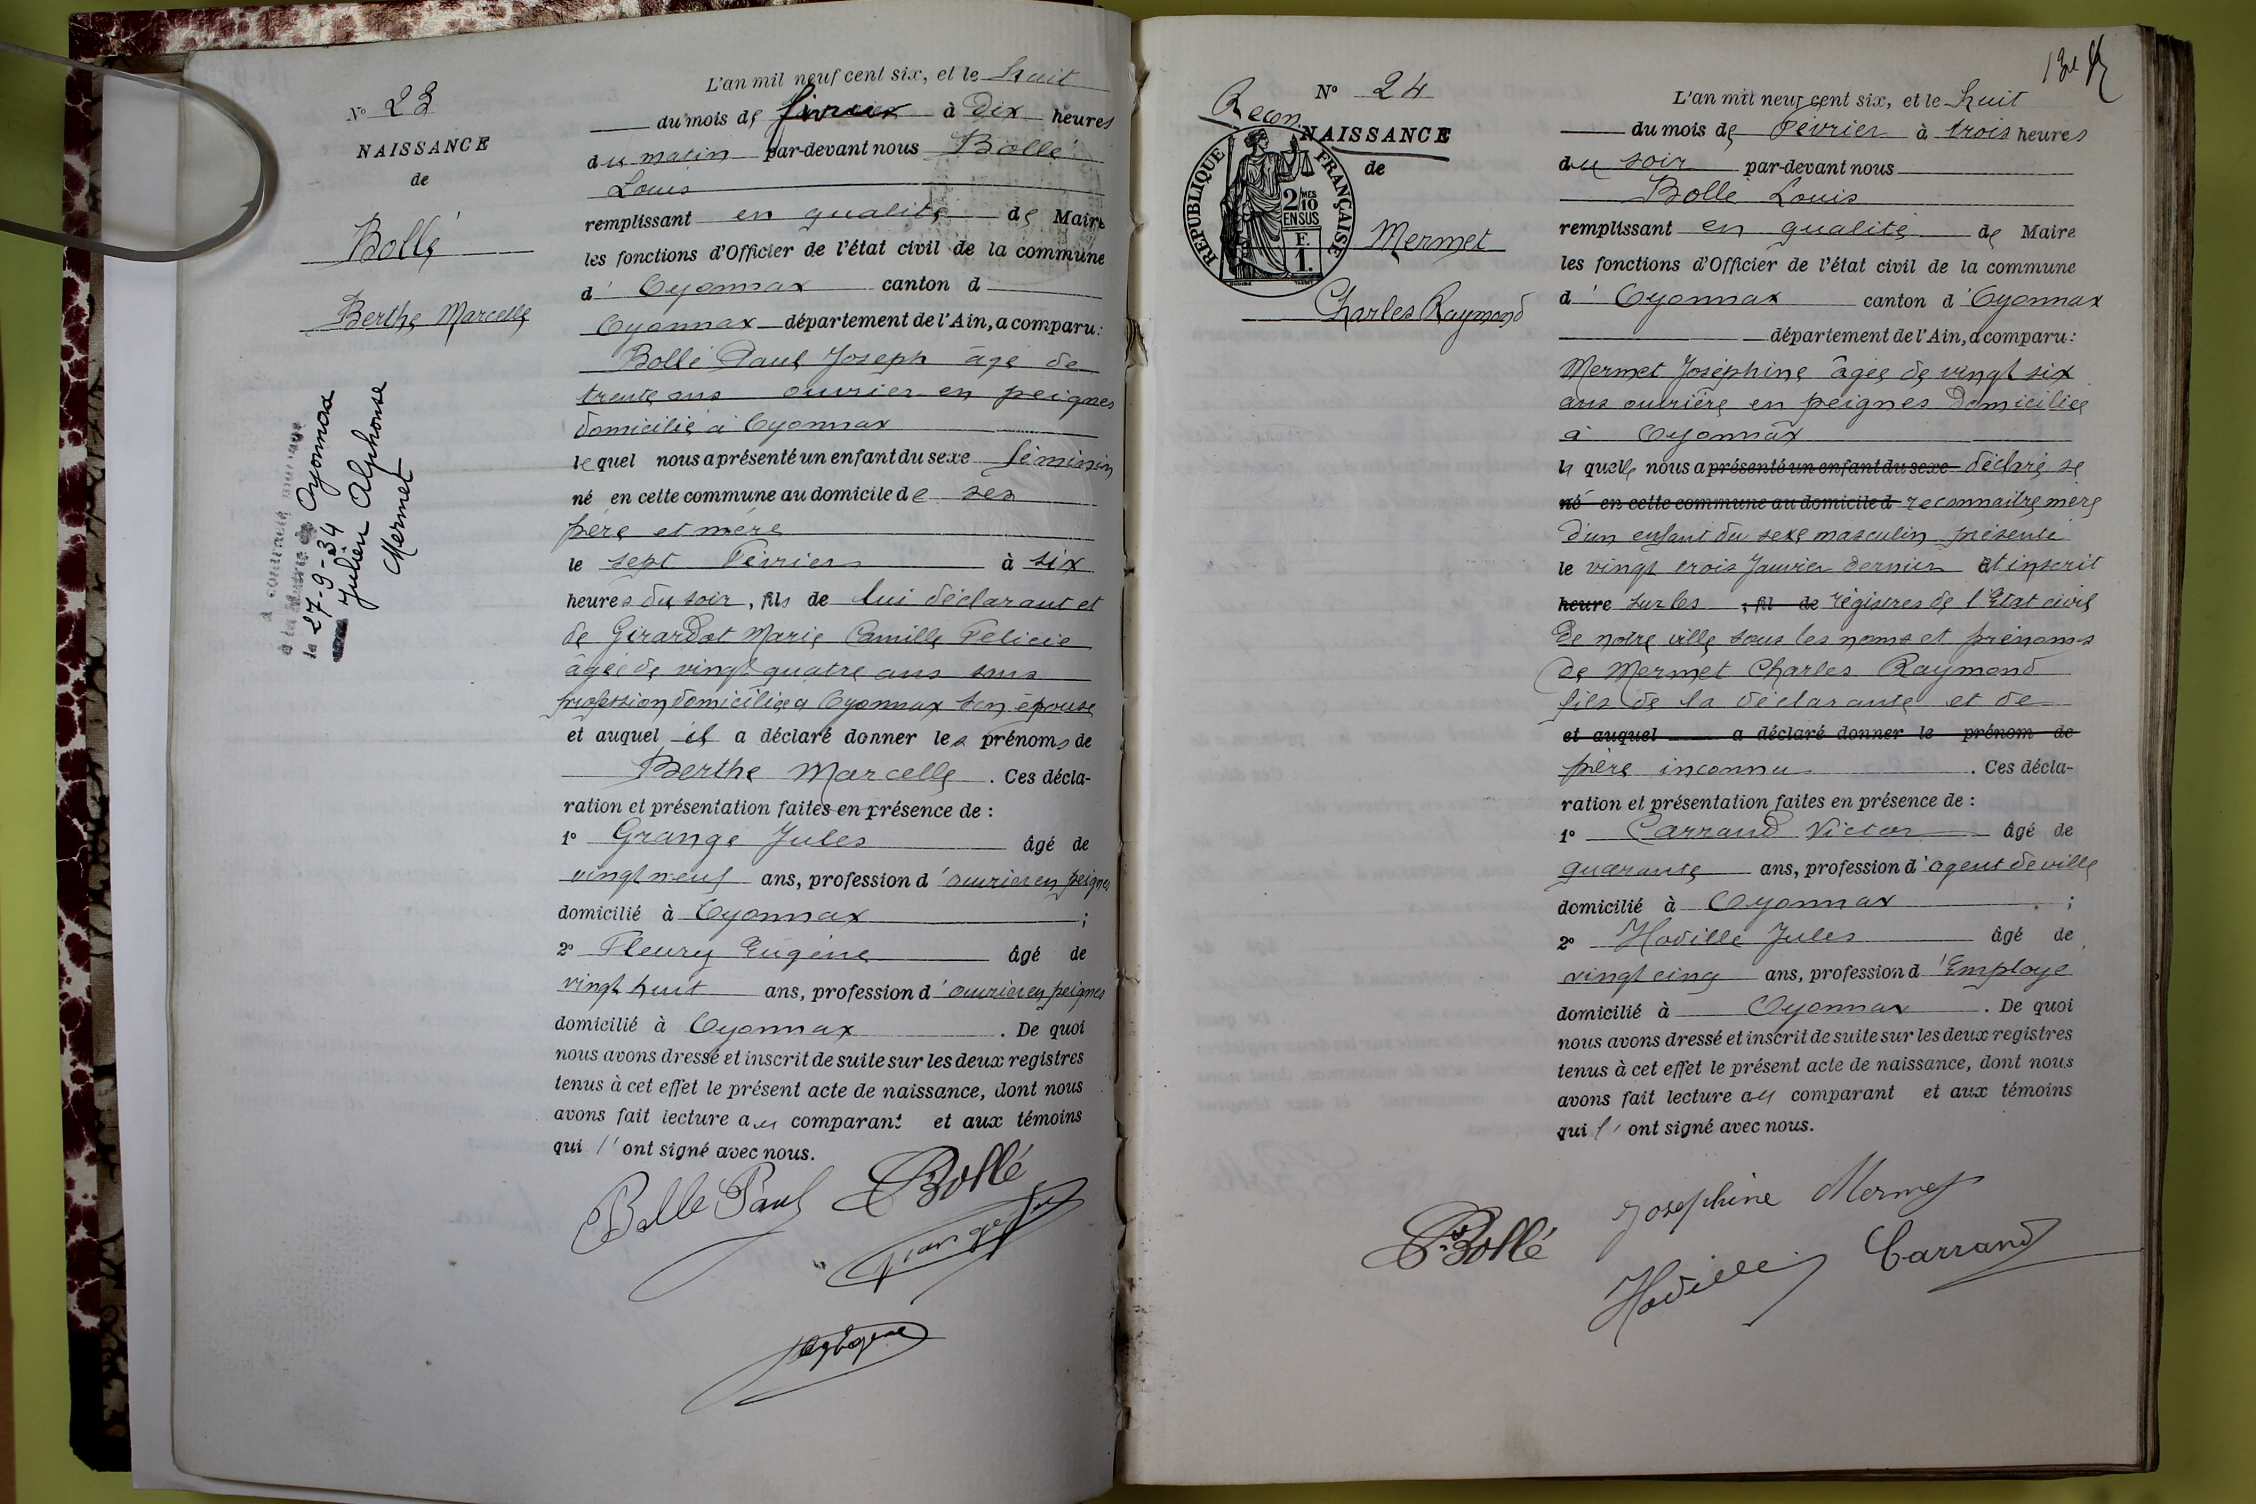 N° 23
NAISSANCE
de
Bollé
Berthe Marcelle
à la mairie de Oyonnax
le 27-9-34
Julien Alphonse
Mermet
L'an mil neuf cent six, et le huit
du mois de février à Dix heures
du matin par-devant nous Bollé
Louis
remplissant en qualité de Maire
les fonctions d'Officier de l'état civil de la commune
d' Oyonnax canton d
Oyonnax département de l'Ain, a comparu:
Bollé Paul Joseph âgé de
trente ans ouvrier en peignes
domicilié à Oyonnax
lequel nous a présenté un enfant du sexe féminin
né en cette commune au domicile de ses
père et mère
le sept Février à six
heures du soir, fils de lui déclarant et
de Girardot Marie Camille Felicie
âgée de vingt quatre ans sans
profession domiciliée a Oyonnax son épouse
et auquel il a déclaré donner les prénoms de
Berthe Marcelle. Ces décla-
ration et présentation faites en présence de :
1° Grange Jules âgé de
vingt neuf ans, profession d'ouvrier en peignes
domicilié à Oyonnax ;
2° Fleury Eugène âgé de
vingt huit ans, profession d'ouvrier en peignes
domicilié à Oyonnax. De quoi
nous avons dressé et inscrit de suite sur les deux registres
tenus à cet effet le présent acte de naissance, dont nous
avons fait lecture au comparant et aux témoins
qui l'ont signé avec nous.
Bolle Paul Bollé
N° 24
Recon
NAISSANCE
de
REPUBLIQUE FRANÇAISE
2/10 MES
EN SUS
F.
1.
Mermet
Charles Raymond
L'an mil neuf cent six, et le huit
du mois de Février à trois heures
du soir par-devant nous
Bollé Louis
remplissant en qualité de Maire
les fonctions d'Officier de l'état civil de la commune
d' Oyonnax canton d'Oyonnax
département de l'Ain, a comparu:
Mermet Joséphine âgée de vingt six
ans ouvrière en peignes Domiciliée
à Oyonnax
laquelle nous a présenté un enfant du sexe déclaré se
né en cette commune au domicile d reconnaître mère
D'un enfant du sexe masculin présenté
le vingt trois Janvier dernier et inscrit
heure sur les , fil de régistres de l'Etat civil
De notre ville sous les noms et prénoms
de Mermet Charles Raymond
fils de la déclarante et de
et auquel a déclaré donner le prénom de
père inconnu. Ces décla-
ration et présentation faites en présence de :
1° Carrand Victor âgé de
quarante ans, profession d'agent de ville
domicilié à Oyonnax ;
2° Hoville Jules âgé de
vingt cinq ans, profession d'Employé
domicilié à Oyonnax. De quoi
nous avons dressé et inscrit de suite sur les deux registres
tenus à cet effet le présent acte de naissance, dont nous
avons fait lecture au comparant et aux témoins
qui l'ont signé avec nous.
Josephine Mermet
Bollé
Carrand